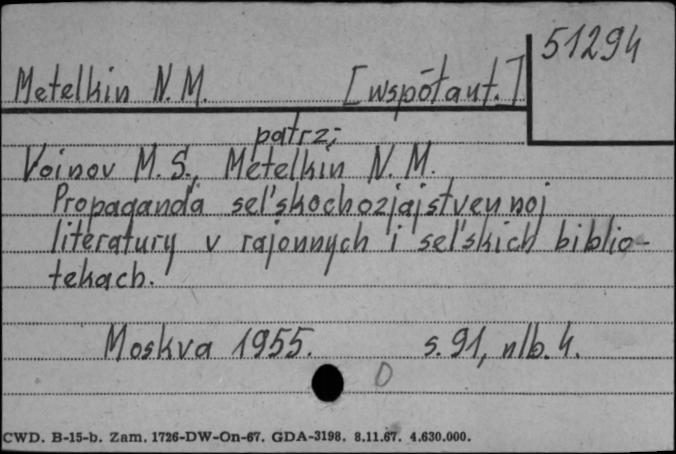 51294
Metelkin N. M. [współaut.]
patrz:
Voinov M. S., Metelkin N. M.
Propaganda sel'skochozjajstvennoj
literatury v rajonnych i sel'skich biblio-
tekach.
Moskva 1955. s. 91, nlb. 4.
0
CWD. B-15-b. Zam. 1726-DW-On-67. GDA-3198. 8.11.67. 4.630.000.